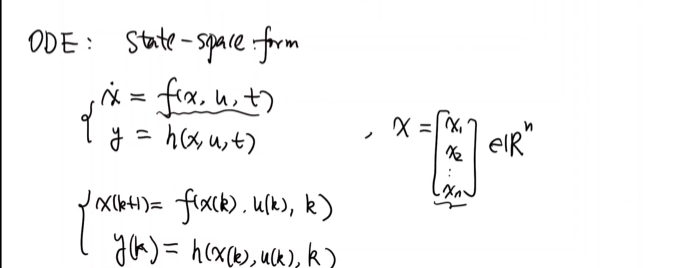 ODE: state-space form
{ ẋ = f(x, u, t)
y = h(x, u, t)
, x = [x₁ x₂ ⋮ xₙ] ∈ ℝⁿ
{ x(k+1) = f(x(k), u(k), k)
y(k) = h(x(k), u(k), k)